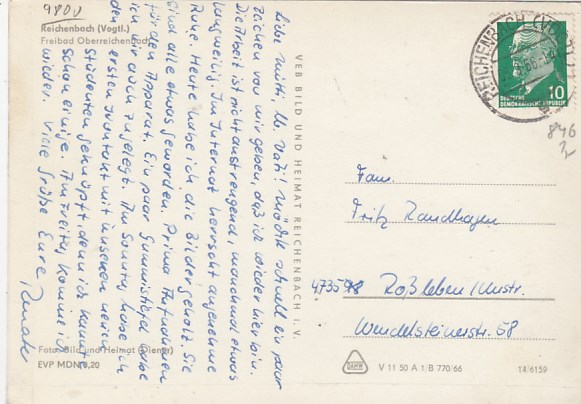 9800
Reichenbach (Vogtl.)
Freibad Oberreichenbach
Liebe Mutti, lb. Vati! Möchte schnell ein paar
Zeichen von mir geben, daß ich wieder hier bin.
Die Arbeit ist nicht anstrengend, manchmal etwas
langweilig. Im Internat herrscht angenehme
Ruhe. Heute habe ich die Bilder geholt. Sie
sind alle etwas geworden. Prima Aufnahmen
für den Apparat. Ein paar Gummistiefel habe
ich mir auch zugelegt. Am Sonntag habe ich
den ersten Kontakt mit unseren neuen
Studenten geknüpft, denn ich kannte
schon einige. Am Freitag komme ich
wieder. Viele Grüße Eure
Renate
Foto: Bild und Heimat (Diener)
EVP MDN 0,20
VEB BILD UND HEIMAT REICHENBACH I. V.
REICHENBACH (VOGTL)
10
DEUTSCHE
DEMOKRATISCHE REPUBLIK
846
2
Fam.
Fritz Randhagen
473598 Roßleben/Unstr.
Wendelsteinerstr. 68
V 11 50 A 1/B 770/66
14/6159